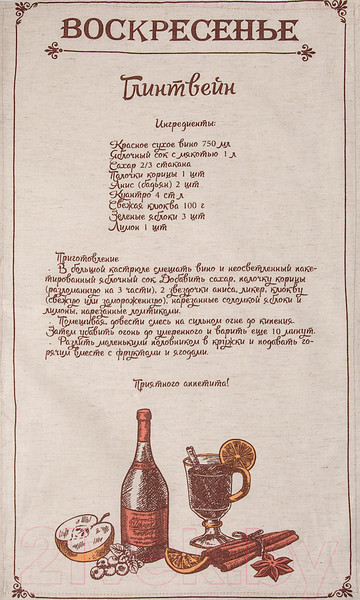 ВОСКРЕСЕНЬЕ
Глинтвейн
Ингредиенты:
Красное сухое вино 750 мл
Яблочный сок с мякотью 1 л
Сахар 2/3 стакана
Палочки корицы 1 шт
Анис (бадьян) 2 шт
Куантро 4 ст л
Свежая клюква 100 г
Зеленые яблоки 3 шт
Лимон 1 шт
Приготовление
В большой кастрюле смешать вино и неосветленный паке-
тированный яблочный сок. Добавить сахар, палочку корицы
(разломанную на 3 части), 2 звездочки аниса, ликер, клюкву
(свежую или замороженную), нарезанные соломкой яблоки и
лимоны, нарезанные ломтиками.
Помешивая, довести смесь на сильном огне до кипения.
Затем убавить огонь до умеренного и варить еще 10 минут.
Разлить маленькими половником в кружки и подавать го-
рячим вместе с фруктами и ягодами.
Приятного аппетита!
21vek.by